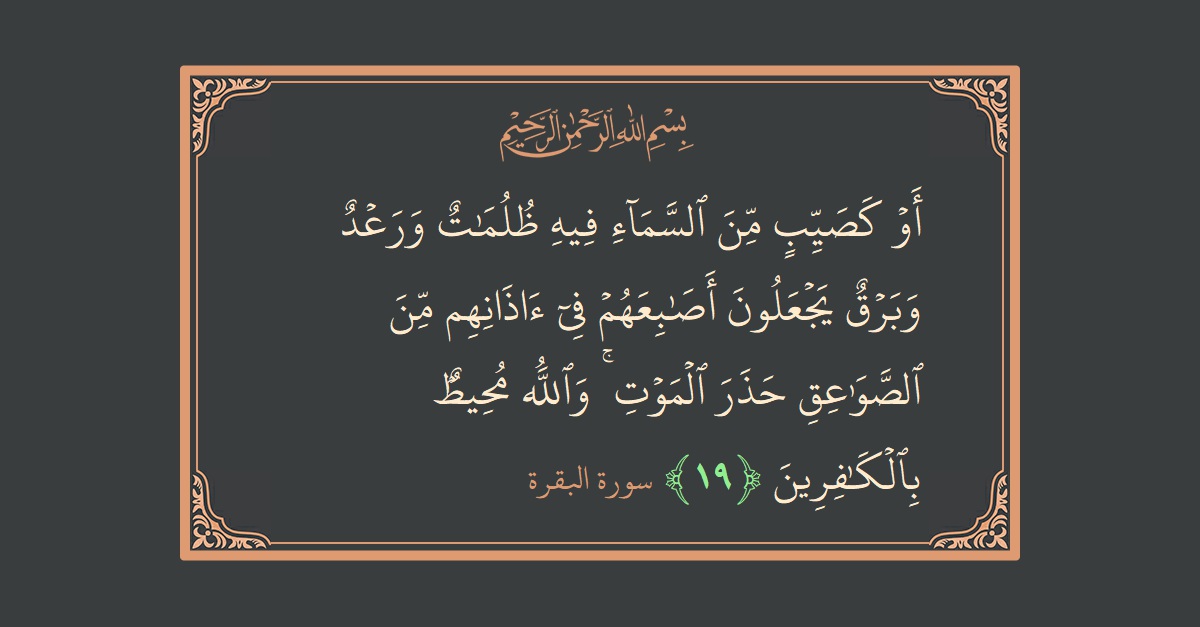 بِسْمِ ٱللَّهِ ٱلرَّحْمَٰنِ ٱلرَّحِيمِ
أَوۡ كَصَيِّبٖ مِّنَ ٱلسَّمَآءِ فِيهِ ظُلُمَٰتٞ وَرَعۡدٞ
وَبَرۡقٞ يَجۡعَلُونَ أَصَٰبِعَهُمۡ فِيٓ ءَاذَانِهِم مِّنَ
ٱلصَّوَٰعِقِ حَذَرَ ٱلۡمَوۡتِۚ وَٱللَّهُ مُحِيطُۢ
بِٱلۡكَٰفِرِينَ ﴿١٩﴾ سورة البقرة